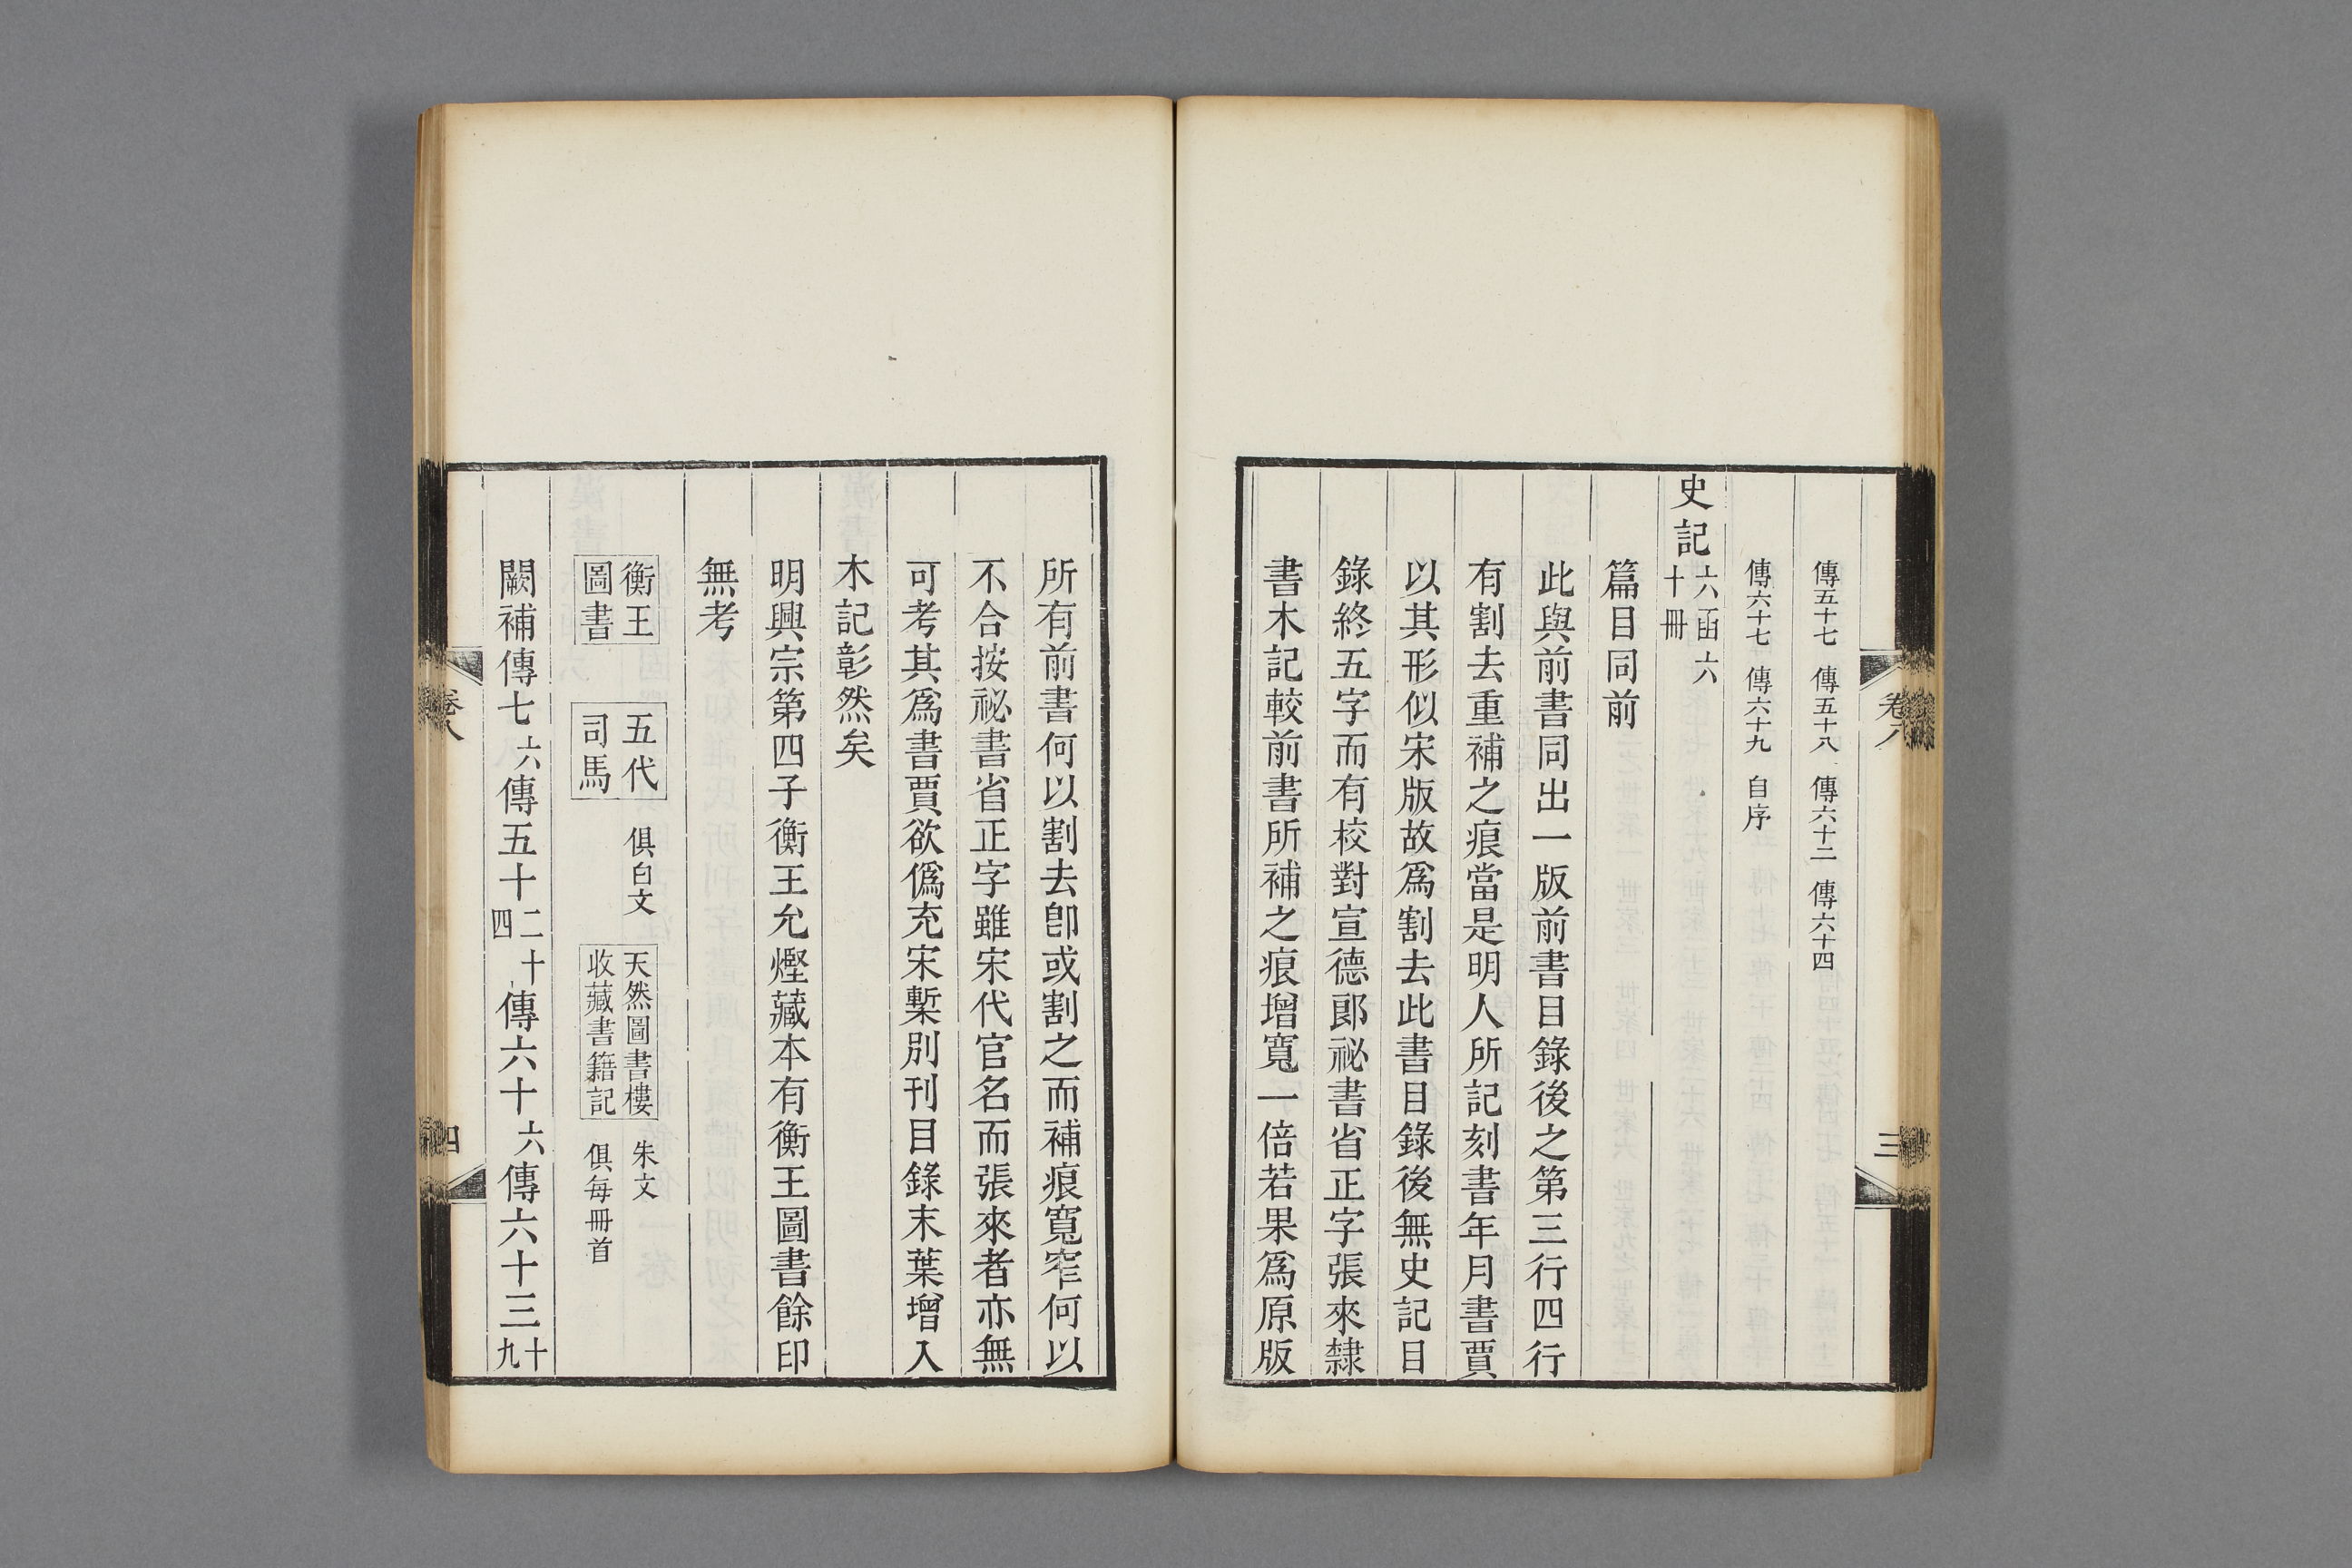 傳五十七　傳五十八　傳六十二　傳六十四
傳六十七　傳六十九　自序
史記六函六十冊
篇目同前
此與前書同出一版前書目錄後之第三行四行
有割去重補之痕當是明人所記刻書年月書賈
以其形似宋版故爲割去此書目錄後無史記目
錄終五字而有校對宣德郎祕書省正字張來隸
書木記較前書所補之痕增寬一倍若果爲原版
卷八
三
所有前書何以割去卽或割之而補痕寬窄何以
不合按祕書省正字雖宋代官名而張來者亦無
可考其爲書賈欲僞充宋槧別刊目錄末葉增入
木記彰然矣
明興宗第四子衡王允熞藏本有衡王圖書餘印
無考
衡王圖書　五代司馬　俱白文　天然圖書樓收藏書籍記　朱文　俱每冊首
闕補傳七六傳五十二四十傳六十六傳六十三十九
卷八
四